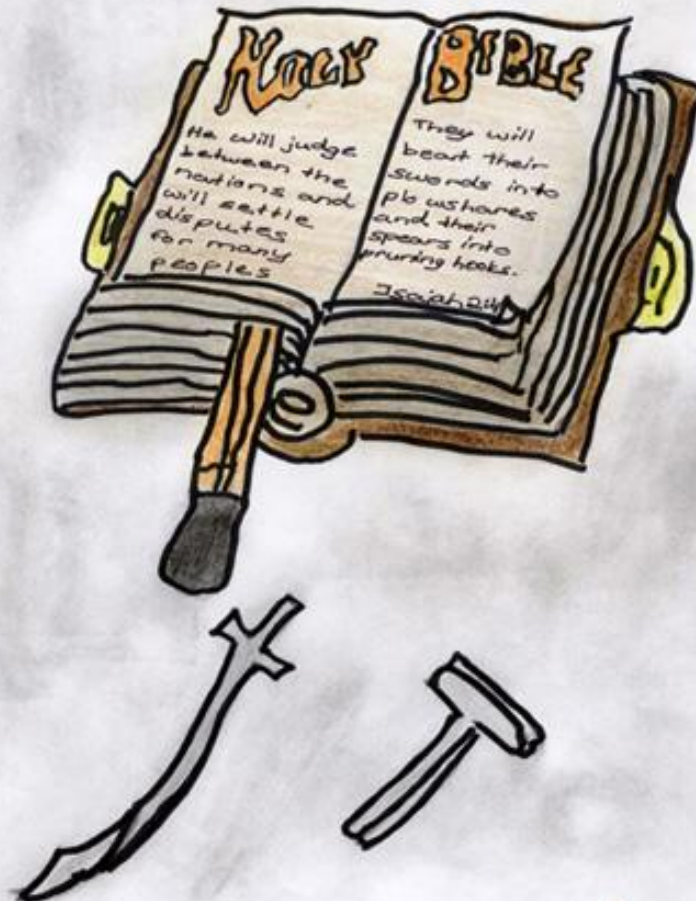 HOLY BIBLE
He will judge
between the
nations and
will settle
disputes
for many
peoples
They will
beat their
swords into
plowshares
and their
spears into
pruning hooks.
Isaiah 2:4